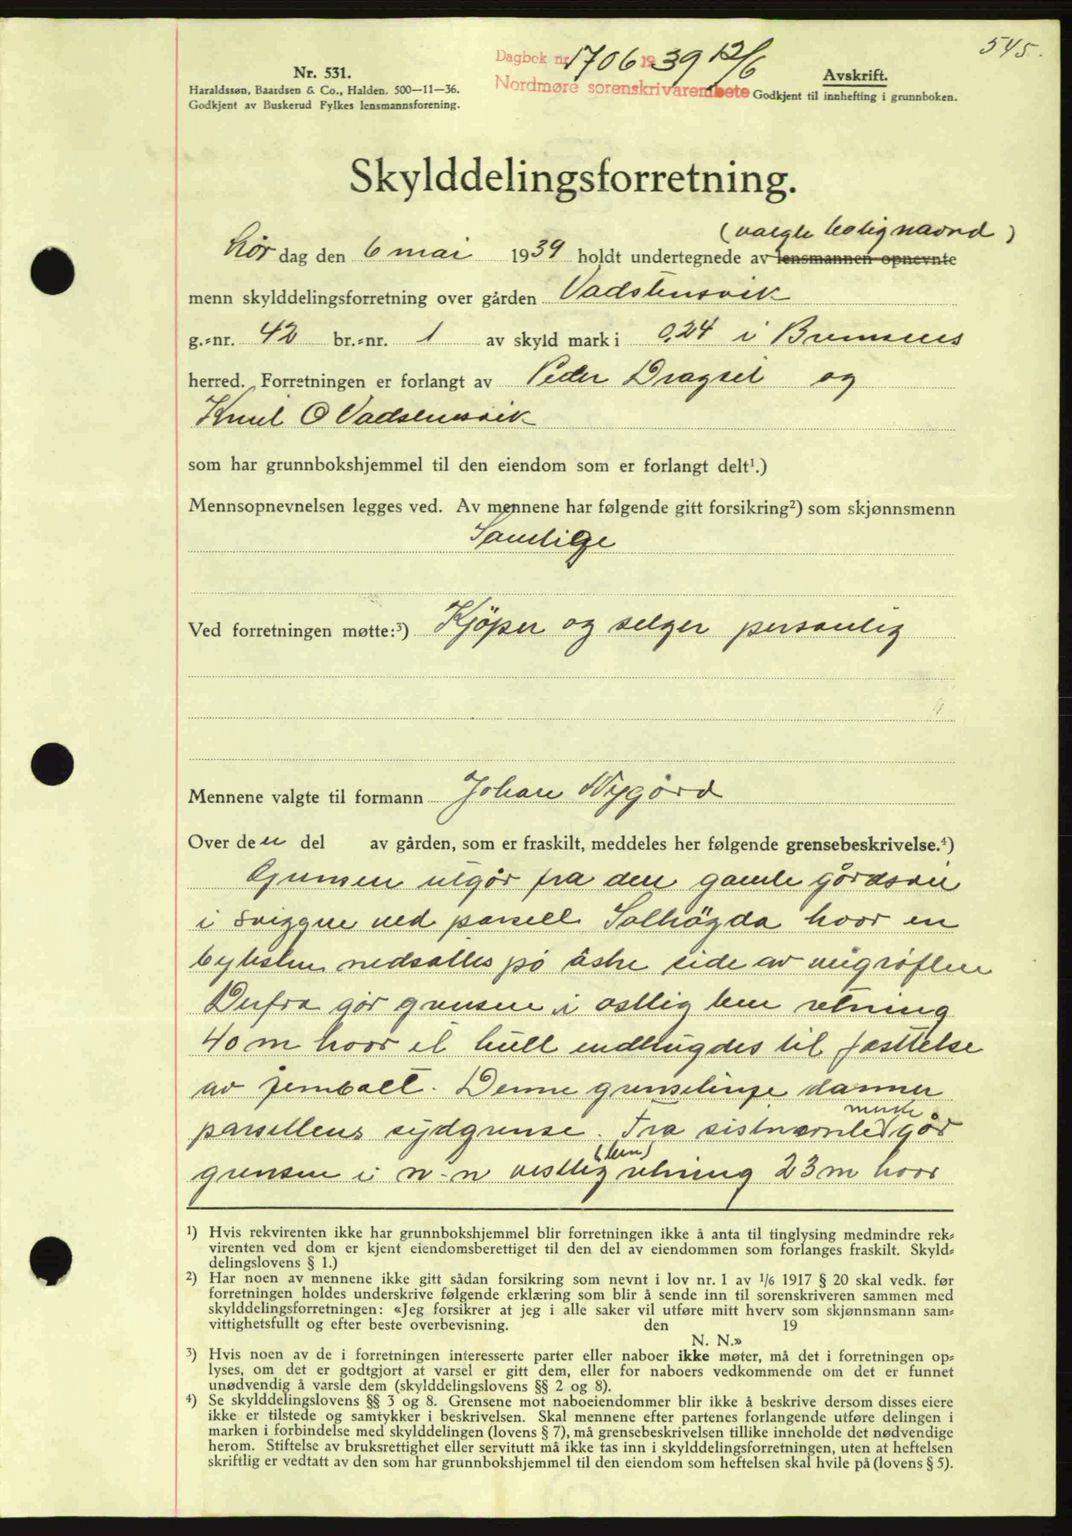 545.
Dagbok nr. 1706 1939 12/6
Nordmøre sorenskrivarembete
Nr. 531.
Haraldssøn, Baardsen & Co., Halden. 500—11—36.
Godkjent av Buskerud Fylkes lensmannsforening.
Avskrift.
Godkjent til innhefting i grunnboken.
Skylddelingsforretning.
(valgte
Lørdag den 6 mai 1939 holdt undertegnede av lensmannen opnevnte
menn skylddelingsforretning over gården Vadstensvik
g.-nr. 42 br.-nr. 1 av skyld mark i 0,24 i Bremsnes
herred. Forretningen er forlangt av Peder Dragset og
Knut O Vadstensvik
som har grunnbokshjemmel til den eiendom som er forlangt delt¹.)
Mennsopnevnelsen legges ved. Av mennene har følgende gitt forsikring²) som skjønnsmenn
Samtlige
Ved forretningen møtte:³) Kjöper og selger personlig
Mennene valgte til formann Johan Nygård
Over den del av gården, som er fraskilt, meddeles her følgende grensebeskrivelse.⁴)
Grensen utgår fra den gamle gårdsvei
i svingen ved parsell Solhögda hvor en
bytesten nedsattes på åstre side av veigrøften
Derfra går grensen i ostlig lem retning
40 m hvor et hull indhugdes til festtelse
av jernbolt. Denne grenselinje danner
parsellens sydgrense. Fra sistnevnte merke går
grensen i n-n vestlig (lem) retning 23 m hvor
¹) Hvis rekvirenten ikke har grunnbokshjemmel blir forretningen ikke å anta til tinglysing medmindre rek-
virenten ved dom er kjent eiendomsberettiget til den del av eiendommen som forlanges fraskilt. Skyld-
delingslovens § 1.)
²) Har noen av mennene ikke gitt sådan forsikring som nevnt i lov nr. 1 av 1/6 1917 § 20 skal vedk. før
forretningen holdes underskrive følgende erklæring som blir å sende inn til sorenskriveren sammen med
skylddelingsforretningen: «Jeg forsikrer at jeg i alle saker vil utføre mitt hverv som skjønnsmann sam-
vittighetsfullt og efter beste overbevisning. den 19
N. N.»
³) Hvis noen av de i forretningen interesserte parter eller naboer ikke møter, må det i forretningen op-
lyses, om det er godtgjort at varsel er gitt dem, eller for naboers vedkommende om det er funnet
unødvendig å varsle dem (skylddelingslovens §§ 2 og 8).
⁴) Se skylddelingslovens §§ 3 og 8. Grensene mot naboeiendommer blir ikke å beskrive dersom disses eiere
ikke er tilstede og samtykker i beskrivelsen. Skal mennene efter partenes forlangende utføre delingen i
marken i forbindelse med skylddelingen (lovens § 7), må grensebeskrivelsen tillike inneholde det nødvendige
herom. Stiftelse av bruksrettighet eller servitutt må ikke tas inn i skylddelingsforretningen, uten at heftelsen
skriftlig er vedtatt av den som har grunnbokshjemmel til den eiendom som heftelsen skal hvile på (lovens § 5).